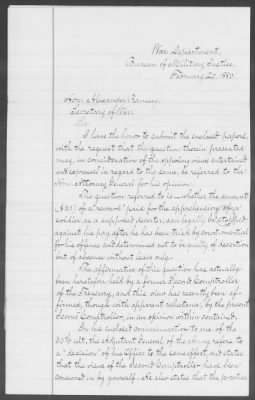 War Department,
Bureau of Military Justice,
February 20, 1880.
Hon. Alexander Ramsey,
Secretary of War.
Sir:
I have the honor to submit the enclosed papers,
with the request that the question therein presented
may, in consideration of the opposing views entertained
and expressed in regard to the same, be referred to the
Hon. Attorney General for his opinion.
The question referred to is—whether the amount
($30) of a "reward" paid for the apprehending of a
soldier as a supposed deserter, can legally be stopped
against his pay after he has been tried by court-martial
for his offence and determined not to be guilty of desertion
but of absence without leave only.
The affirmative of this question has actually
been heretofore held by a former Second Comptroller
of the Treasury, and this view has recently been
affirmed, though with apparent reluctance, by the present
Second Comptroller, in an opinion within contained.
In his enclosed communication to me of the
30th ult., the Adjutant General of the Army refers to
a "decision" of his Office to the same effect, and states
that the views of the Second Comptroller have been
concurred in by yourself. He also states that the practice